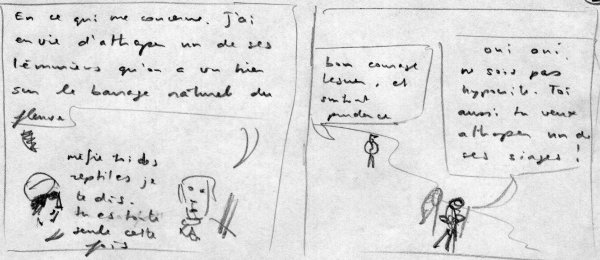 En ce qui me concerne. J'ai
envie d'attraper un de ses
lémuriens qu'on a vu hier
sur le barrage naturel du
fleuve
méfie toi des
reptiles je
te dis.
tu es toute
seule cette
fois
bon courage
et
surtout
prudence
oui oui.
ne sois pas
hypocrite. Toi
aussi tu veux
attraper un de
ses singes!